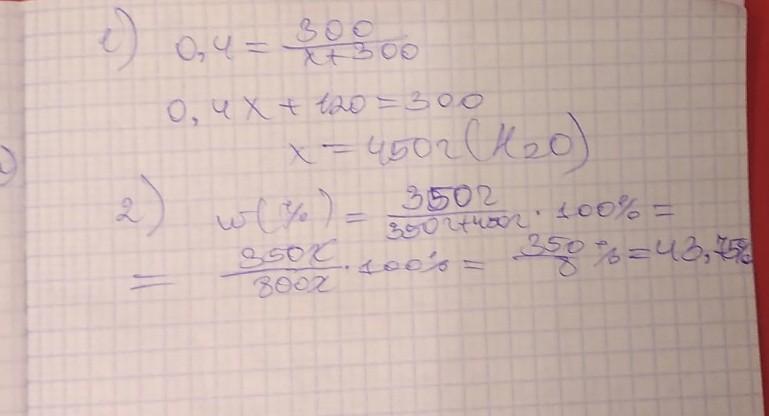 1) 0,4 = 300 / x+300
0,4x + 120 = 300
x = 450г (H2O)
2) w(%) = 350г / 350г+450г · 100% =
= 350г / 800г · 100% = 350 / 8 % = 43,75%